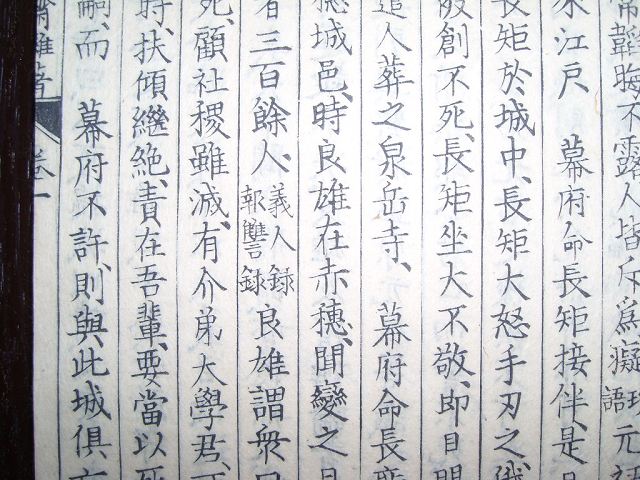 常韜晦不露、人皆斥爲癡
語
元
來江戸 幕府命長矩接伴、是
長矩於城中、長矩大怒手刃之、
被創不死、長矩坐大不敬、即日
遺人葬之泉岳寺、 幕府命長
穂城邑、時良雄在赤穂、聞變之
者三百餘人、義人録報讐録良雄謂衆
死、顧社稷雖滅、有介弟大學君、
時、扶傾繼絶、責在吾輩、要當以死
嗣、而 幕府不許、則與此城倶
卷一